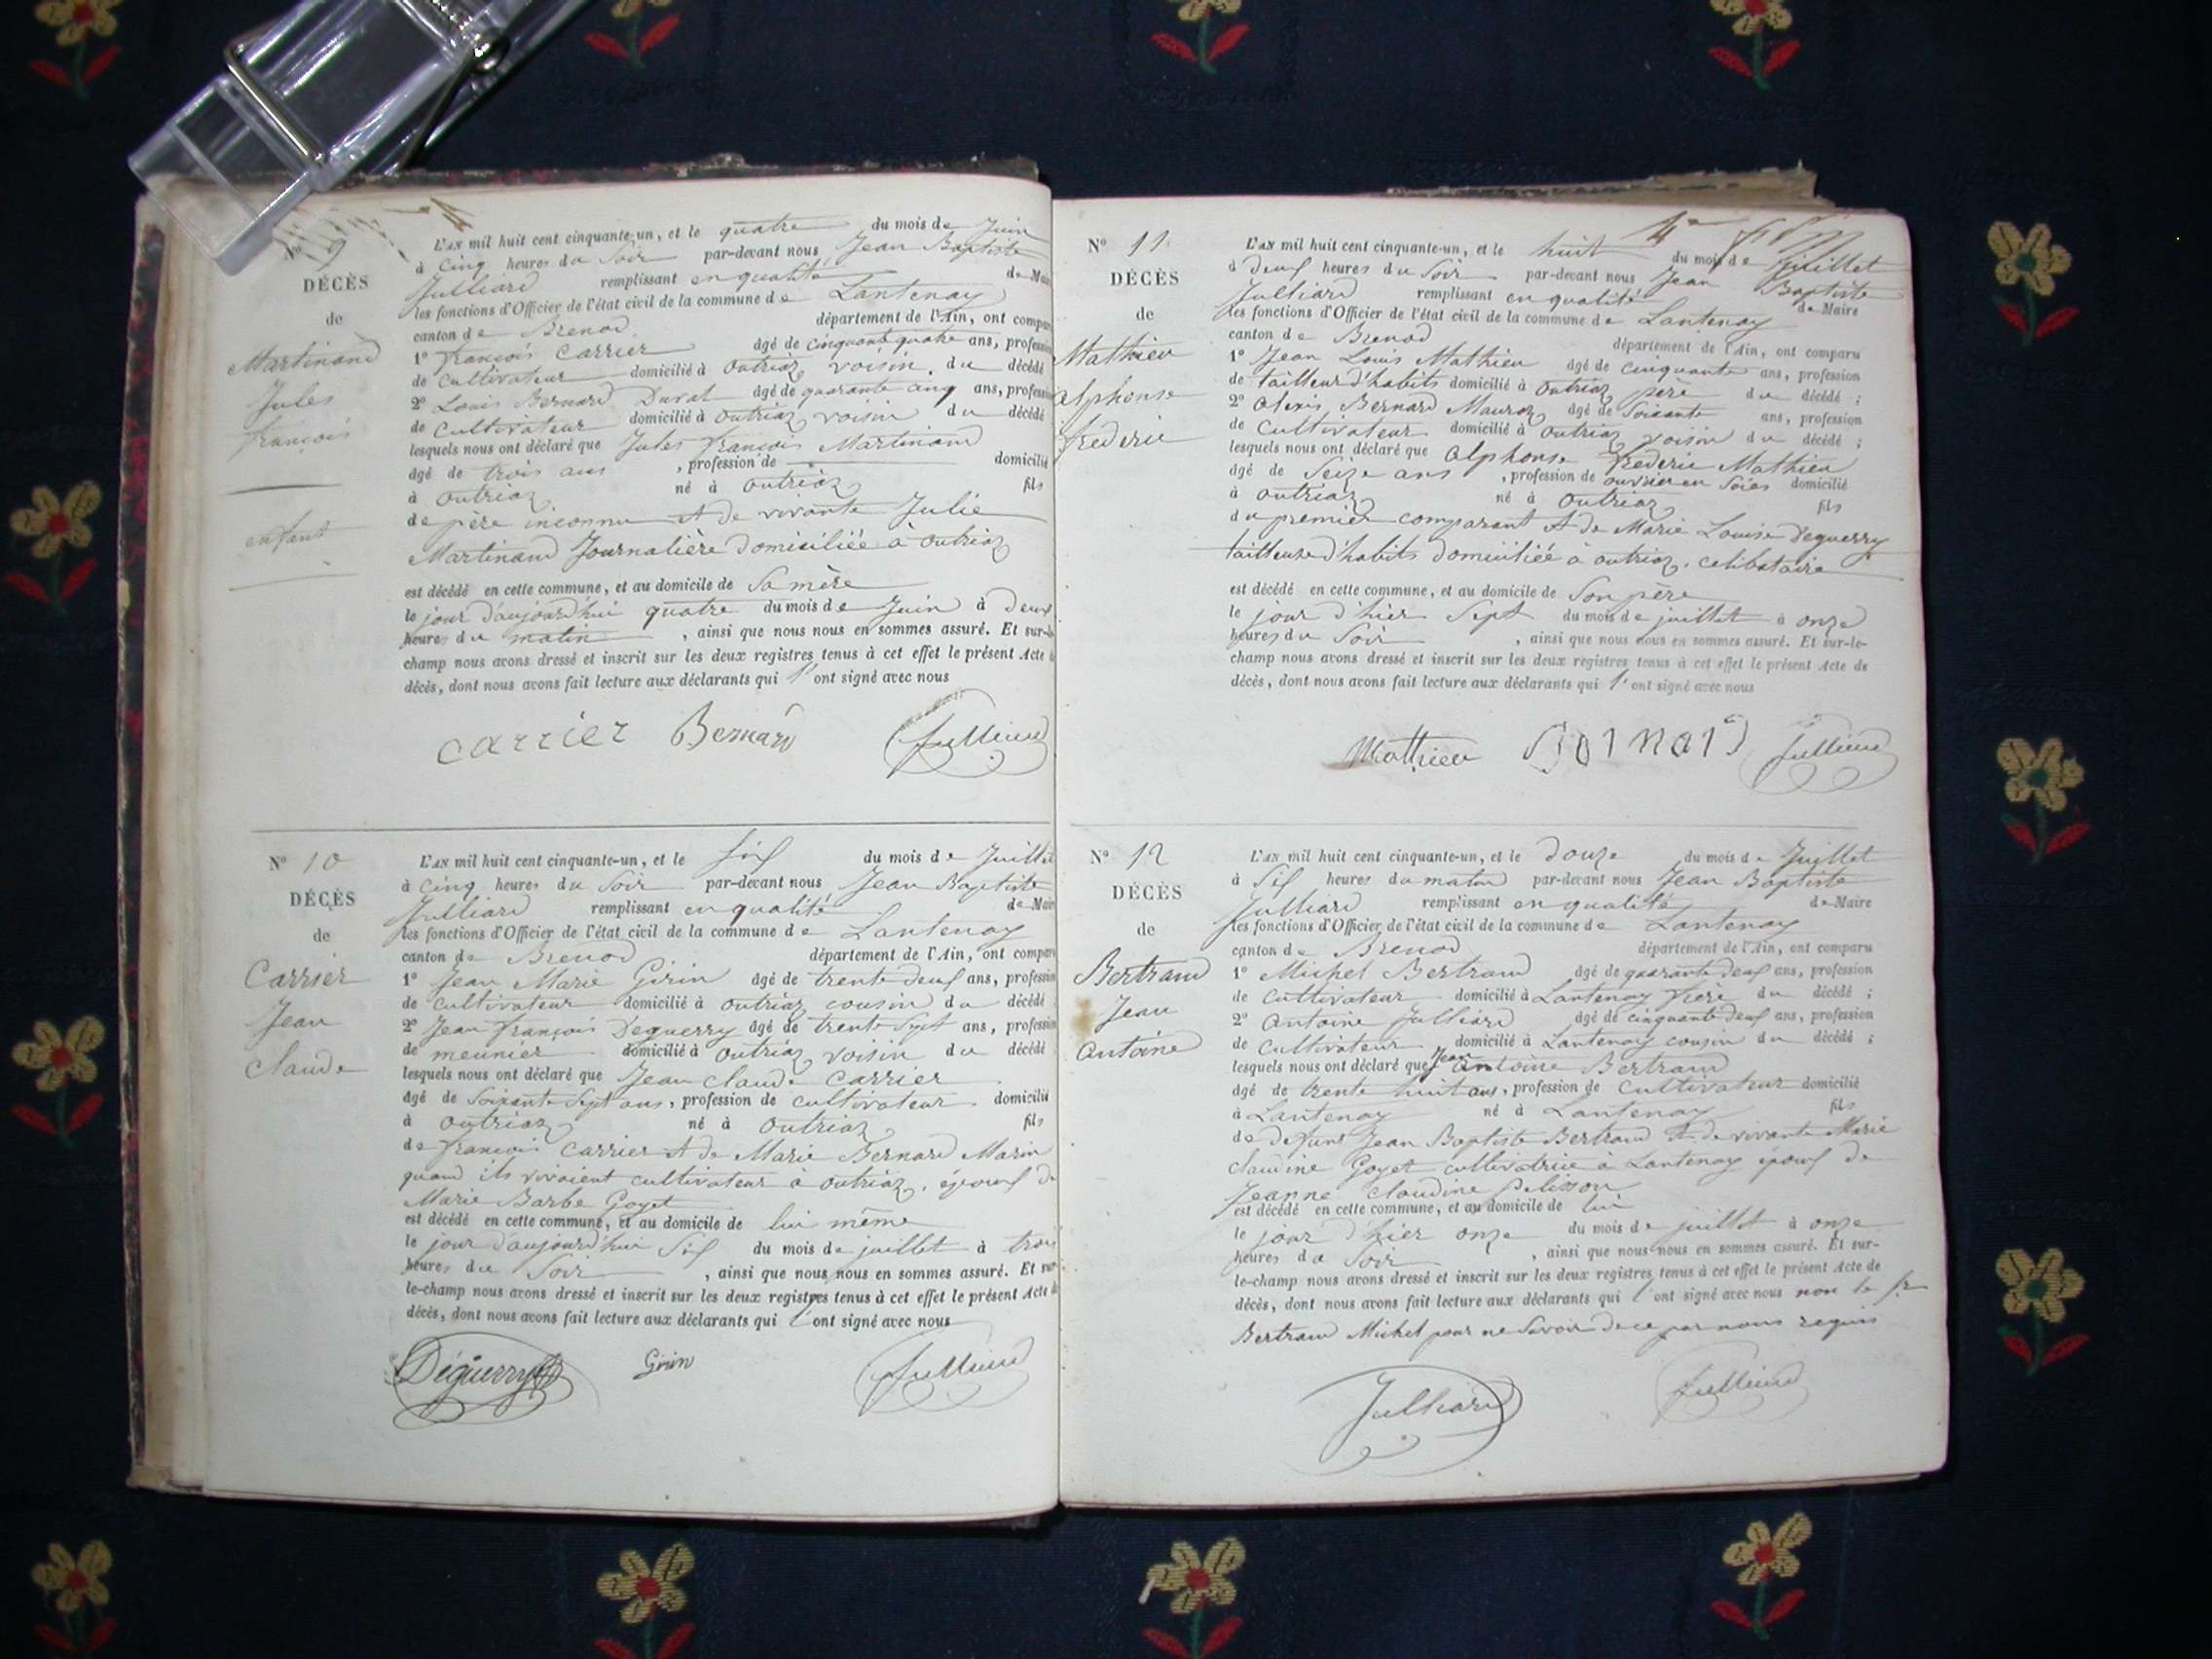 N° 9
DÉCÈS
de
Martinand
Jules
françois
enfant
L'AN mil huit cent cinquante-un, et le quatre du mois de Juin
à Cinq heures du Soir par-devant nous Jean Baptiste
Julliard remplissant en qualité de Maire
les fonctions d'Officier de l'état civil de la commune de Lantenay
canton de Brenod département de l'Ain, ont comparu
1° françois Carrier âgé de cinquante quatre ans, profession
de Cultivateur domicilié à Outriaz voisin du décédé
2° Louis Bernard Duvat âgé de quarante cinq ans, profession
de Cultivateur domicilié à Outriaz voisin du décédé
lesquels nous ont déclaré que Jules françois Martinand
âgé de trois ans , profession de domicilié
à Outriaz né à Outriaz fils
de père inconnu et de vivante Julie
Martinand Journalière domiciliée à Outriaz
est décédé en cette commune, et au domicile de Sa mère
le jour d'aujourd'hui quatre du mois de Juin à deux
heures du matin , ainsi que nous nous en sommes assuré. Et sur-le-
champ nous avons dressé et inscrit sur les deux registres tenus à cet effet le présent Acte de
décès, dont nous avons fait lecture aux déclarants qui l'ont signé avec nous
carrier Bernard Julliard
N° 10
DÉCÈS
de
Carrier
Jean
Claude
L'AN mil huit cent cinquante-un, et le Six du mois de Juillet
à Cinq heures du Soir par-devant nous Jean Baptiste
Julliard remplissant en qualité de Maire
les fonctions d'Officier de l'état civil de la commune de Lantenay
canton de Brenod département de l'Ain, ont comparu
1° Jean Marie Girin âgé de trente deux ans, profession
de Cultivateur domicilié à Outriaz cousin du décédé
2° Jean françois Deguerry âgé de trente Sept ans, profession
de meunier domicilié à Outriaz voisin du décédé
lesquels nous ont déclaré que Jean Claude Carrier
âgé de Soixante Sept ans, profession de Cultivateur domicilié
à Outriaz né à Outriaz fils
de françois Carrier et de Marie Bernard Marin
quand ils vivaient cultivateur à Outriaz, époux de
Marie Barbe Goyet
est décédé en cette commune, et au domicile de lui même
le jour d'aujourd'hui Six du mois de juillet à trois
heures du Soir , ainsi que nous nous en sommes assuré. Et sur-
le-champ nous avons dressé et inscrit sur les deux registres tenus à cet effet le présent Acte de
décès, dont nous avons fait lecture aux déclarants qui l'ont signé avec nous
Déguerry Girin Julliard
N° 11
DÉCÈS
de
Mathieu
Alphonse
frederic
L'AN mil huit cent cinquante-un, et le huit du mois de juillet
à deux heures du Soir par-devant nous Jean Baptiste
Julliard remplissant en qualité de Maire
les fonctions d'Officier de l'état civil de la commune de Lantenay
canton de Brenod département de l'Ain, ont comparu
1° Jean Louis Mathieu âgé de cinquante ans, profession
de tailleur d'habits domicilié à Outriaz père du décédé ;
2° Alexis Bernard Mauroz âgé de Soixante ans, profession
de Cultivateur domicilié à Outriaz voisin du décédé ;
lesquels nous ont déclaré que Alphonse frederic Mathieu
âgé de Seize ans , profession de ouvrier en Soies domicilié
à Outriaz né à Outriaz fils
du premier comparant et de Marie Louise Deguerry
tailleuse d'habits domiciliée à outriaz. celibataire
est décédé en cette commune, et au domicile de Son père
le jour d'hier Sept du mois de juillet à onze
heures du Soir , ainsi que nous nous en sommes assuré. Et sur-le-
champ nous avons dressé et inscrit sur les deux registres tenus à cet effet le présent Acte de
décès, dont nous avons fait lecture aux déclarants qui l'ont signé avec nous
Mathieu Bernard Julliard
N° 12
DÉCÈS
de
Bertrand
Jean
Antoine
L'AN mil huit cent cinquante-un, et le douze du mois de Juillet
à Six heures du matin par-devant nous Jean Baptiste
Julliard remplissant en qualité de Maire
les fonctions d'Officier de l'état civil de la commune de Lantenay
canton de Brenod département de l'Ain, ont comparu
1° Michel Bertrand âgé de quarante deux ans, profession
de Cultivateur domicilié à Lantenay frère du décédé ;
2° Antoine Julliard âgé de cinquante deux ans, profession
de Cultivateur domicilié à Lantenay cousin du décédé ;
lesquels nous ont déclaré que Jean Antoine Bertrand
âgé de trente huit ans, profession de Cultivateur domicilié
à Lantenay né à Lantenay fils
de defunt Jean Baptiste Bertrand et de vivante Marie
Claudine Goyet cultivatrice à Lantenay époux de
Jeanne Claudine Pelisson
est décédé en cette commune, et au domicile de lui
le jour d'hier onze du mois de juillet à onze
heures du Soir , ainsi que nous nous en sommes assuré. Et sur-
le-champ nous avons dressé et inscrit sur les deux registres tenus à cet effet le présent Acte de
décès, dont nous avons fait lecture aux déclarants qui l'ont signé avec nous non le Sr
Bertrand Michel pour ne Savoir de ce par nous requis
Julliard Julliard